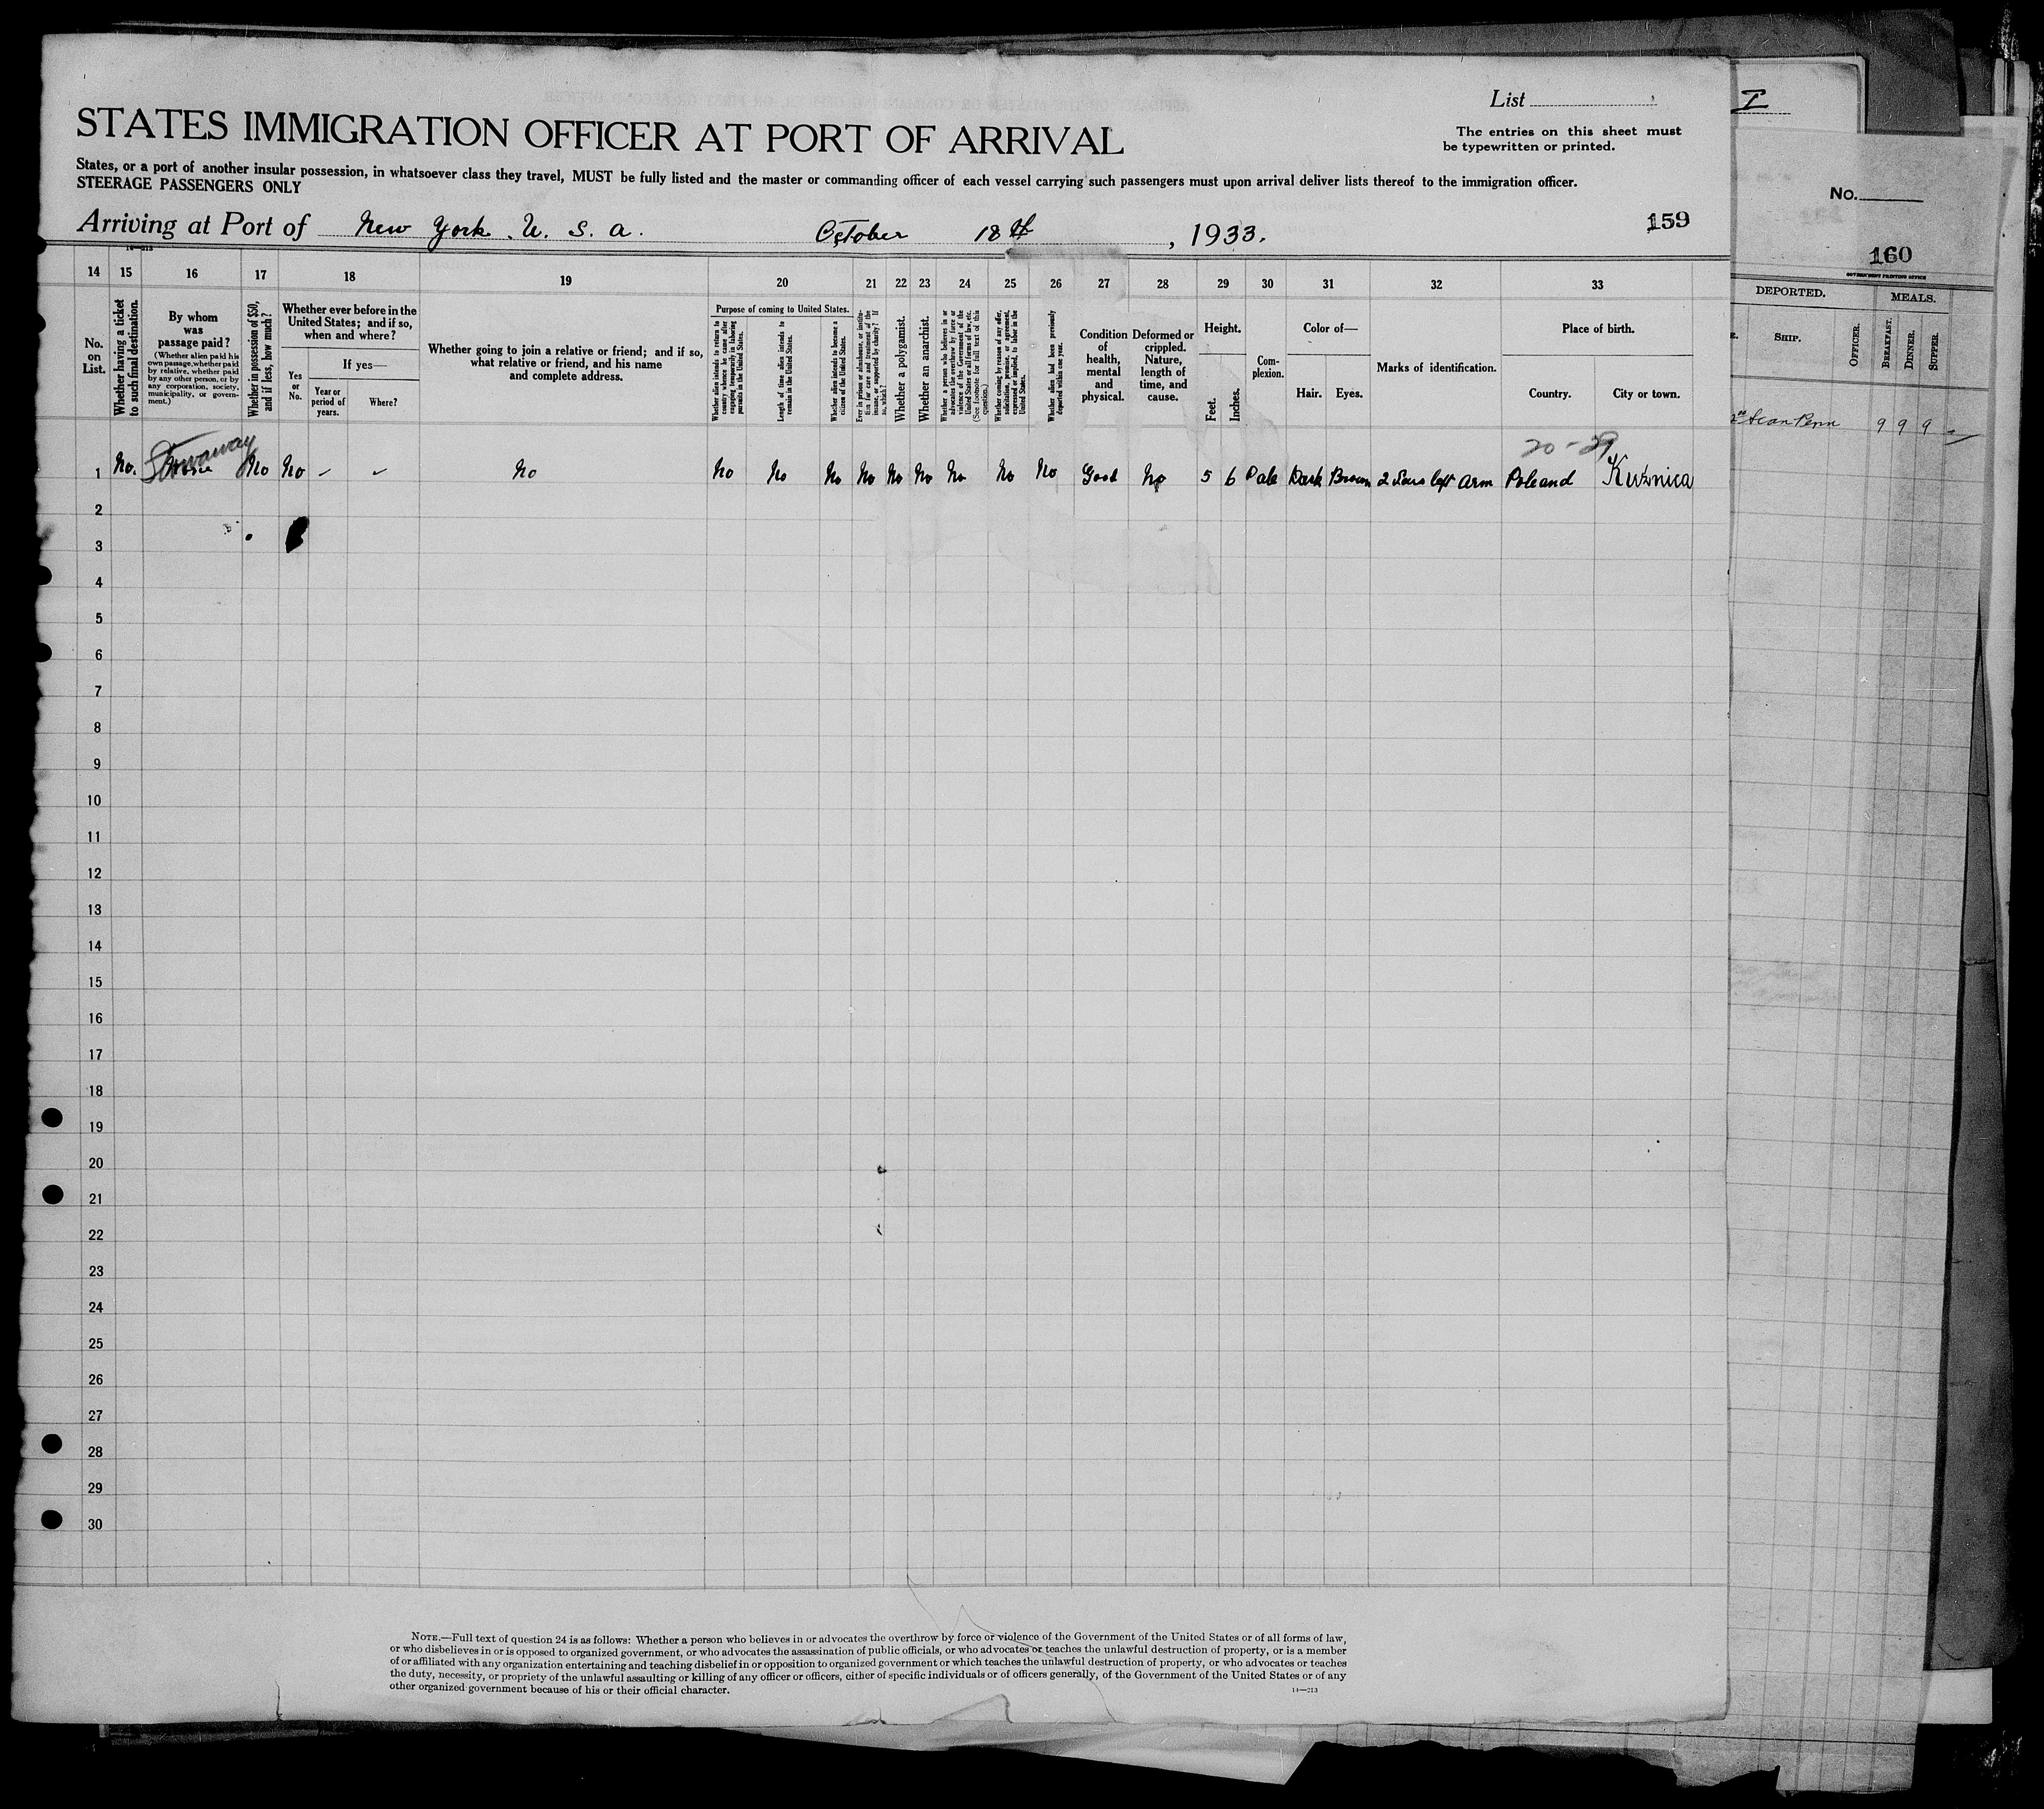 List
The entries on this sheet must
be typewritten or printed.
STATES IMMIGRATION OFFICER AT PORT OF ARRIVAL
States, or a port of another insular possession, in whatsoever class they travel, MUST be fully listed and the master or commanding officer of each vessel carrying such passengers must upon arrival deliver lists thereof to the immigration officer.
STEERAGE PASSENGERS ONLY
Arriving at Port of New York. U. S. A. October 18th, 1933.
159
14—213
14 15 16 17 18 19 20 21 22 23 24 25 26 27 28 29 30 31 32 33
No.
on
List.
Whether having a ticket
to such final destination.
By whom
was
passage paid?
(Whether alien paid his
own passage, whether paid
by relative, whether paid
by any other person, or by
any corporation, society,
municipality, or govern-
ment.)
Whether in possession of $50,
and if less, how much?
Whether ever before in the
United States; and if so,
when and where?
If yes—
Yes
or
No.
Year or
period of
years.
Where?
Whether going to join a relative or friend; and if so,
what relative or friend, and his name
and complete address.
Purpose of coming to United States.
Whether alien intends to return to
country whence he came after
engaging temporarily in laboring
pursuits in the United States.
Length of time alien intends to
remain in the United States.
Whether alien intends to become a
citizen of the United States.
Ever in prison or almshouse, or institu-
tion for care and treatment of the
insane, or supported by charity? If
so, which?
Whether a polygamist.
Whether an anarchist.
Whether a person who believes in or
advocates the overthrow by force or
violence of the Government of the
United States or all forms of law, etc.
(See footnote for full text of this
question.)
Whether coming by reason of any offer,
solicitation, promise, or agreement,
expressed or implied, to labor in the
United States.
Whether alien had been previously
deported within one year.
Condition
of
health,
mental
and
physical.
Deformed or
crippled.
Nature,
length of
time, and
cause.
Height.
Feet.
Inches.
Com-
plexion.
Color of—
Hair. Eyes.
Marks of identification.
Place of birth.
Country. City or town.
20 - 29
Stowaway
1 No. None No No – – No No No No No No No No No No Good No 5 6 Pale Dark Brown 2 Scars left Arm Poland Kuźnica
2
3
4
5
6
7
8
9
10
11
12
13
14
15
16
17
18
19
20
21
22
23
24
25
26
27
28
29
30
NOTE.—Full text of question 24 is as follows: Whether a person who believes in or advocates the overthrow by force or violence of the Government of the United States or of all forms of law,
or who disbelieves in or is opposed to organized government, or who advocates the assassination of public officials, or who advocates or teaches the unlawful destruction of property, or is a member
of or affiliated with any organization entertaining and teaching disbelief in or opposition to organized government or which teaches the unlawful destruction of property, or who advocates or teaches
the duty, necessity, or propriety of the unlawful assaulting or killing of any officer or officers, either of specific individuals or of officers generally, of the Government of the United States or of any
other organized government because of his or their official character.
14—213
I
No.
160
GOVERNMENT PRINTING OFFICE
DEPORTED. MEALS.
SHIP.
OFFICER.
BREAKFAST.
DINNER.
SUPPER.
Penn 9 9 9